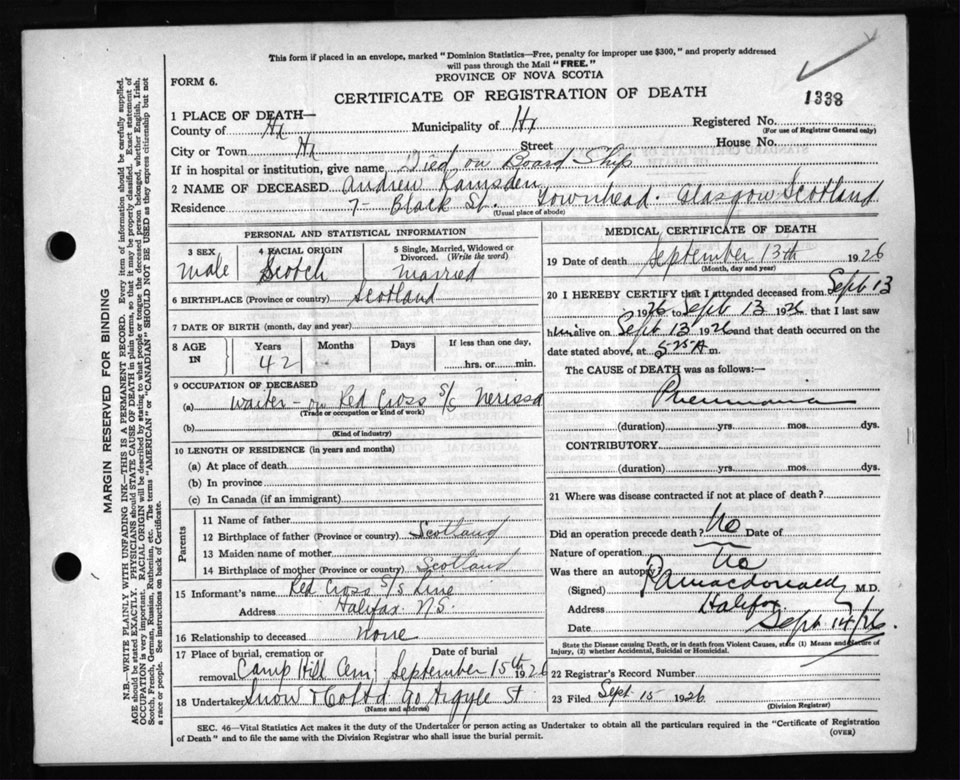 This form if placed in an envelope, marked "Dominion Statistics—Free, penalty for improper use $300," and properly addressed
will pass through the Mail "FREE."
PROVINCE OF NOVA SCOTIA
FORM 6.
CERTIFICATE OF REGISTRATION OF DEATH
1338
1 PLACE OF DEATH—
County of Hx Municipality of Hx Registered No.
(For use of Registrar General only)
City or Town Hx Street House No.
If in hospital or institution, give name Died on Board Ship
2 NAME OF DECEASED Andrew Ramsden
Residence 7- Black St. Townhead. Glasgow Scotland
(Usual place of abode)
PERSONAL AND STATISTICAL INFORMATION
3 SEX 4 RACIAL ORIGIN 5 Single, Married, Widowed or
Divorced. (Write the word)
Male Scotch Married
6 BIRTHPLACE (Province or country) Scotland
7 DATE OF BIRTH (month, day and year)
8 AGE IN Years Months Days If less than one day,
42 hrs. or min.
9 OCCUPATION OF DECEASED
(a) waiter - on Red Cross S/S Nerissa
(Trade or occupation or kind of work)
(b)
(Kind of industry)
10 LENGTH OF RESIDENCE (in years and months)
(a) At place of death
(b) In province
(c) In Canada (if an immigrant)
Parents
11 Name of father
12 Birthplace of father (Province or country) Scotland
13 Maiden name of mother
14 Birthplace of mother (Province or country) Scotland
15 Informant's name Red Cross S/S Line
Address Halifax N.S.
16 Relationship to deceased none
17 Place of burial, cremation or Date of burial
removal Camp Hill Cem September 15th 1926
18 Undertaker Snow & Co Ltd 90 Argyle St
(Name and address)
MEDICAL CERTIFICATE OF DEATH
19 Date of death September 13th 1926
(Month, day and year)
20 I HEREBY CERTIFY that I attended deceased from Sept 13
1926 to Sept 13 1926, that I last saw
him alive on Sept 13 1926 and that death occurred on
date stated above, at 5-25 A m.
The CAUSE of DEATH was as follows:—
Pneumonia
(duration) yrs. mos. dys.
CONTRIBUTORY
(duration) yrs. mos. dys.
21 Where was disease contracted if not at place of death?
Did an operation precede death? No Date of
Nature of operation
Was there an autopsy? No
(Signed) MacDonald M.D.
Address Halifax
Date Sept 14/26
State the Disease causing Death, or in death from Violent Causes, state (1) Means and Nature of
Injury, (2) whether Accidental, Suicidal or Homicidal.
22 Registrar's Record Number
23 Filed Sept 15 1926
(Division Registrar)
SEC. 46—Vital Statistics Act makes it the duty of the Undertaker or person acting as Undertaker to obtain all the particulars required in the "Certificate of Registration
of Death" and to file the same with the Division Registrar who shall issue the burial permit.
(OVER)
MARGIN RESERVED FOR BINDING
N.B.—WRITE PLAINLY WITH UNFADING INK—THIS IS A PERMANENT RECORD. Every item of information should be carefully supplied.
AGE should be stated EXACTLY. PHYSICIANS should STATE CAUSE OF DEATH in plain terms, so that it may be properly classified. Exact statement of
OCCUPATION is very important. RACIAL ORIGIN will be described by stating to what people or tongue the deceased person belonged, whether English, Irish,
Scotch, French, German, Russian, Ruthenian, etc. The terms "AMERICAN" or "CANADIAN" SHOULD NOT BE USED as they express citizenship but not
a race or people. See instructions on back of Certificate.